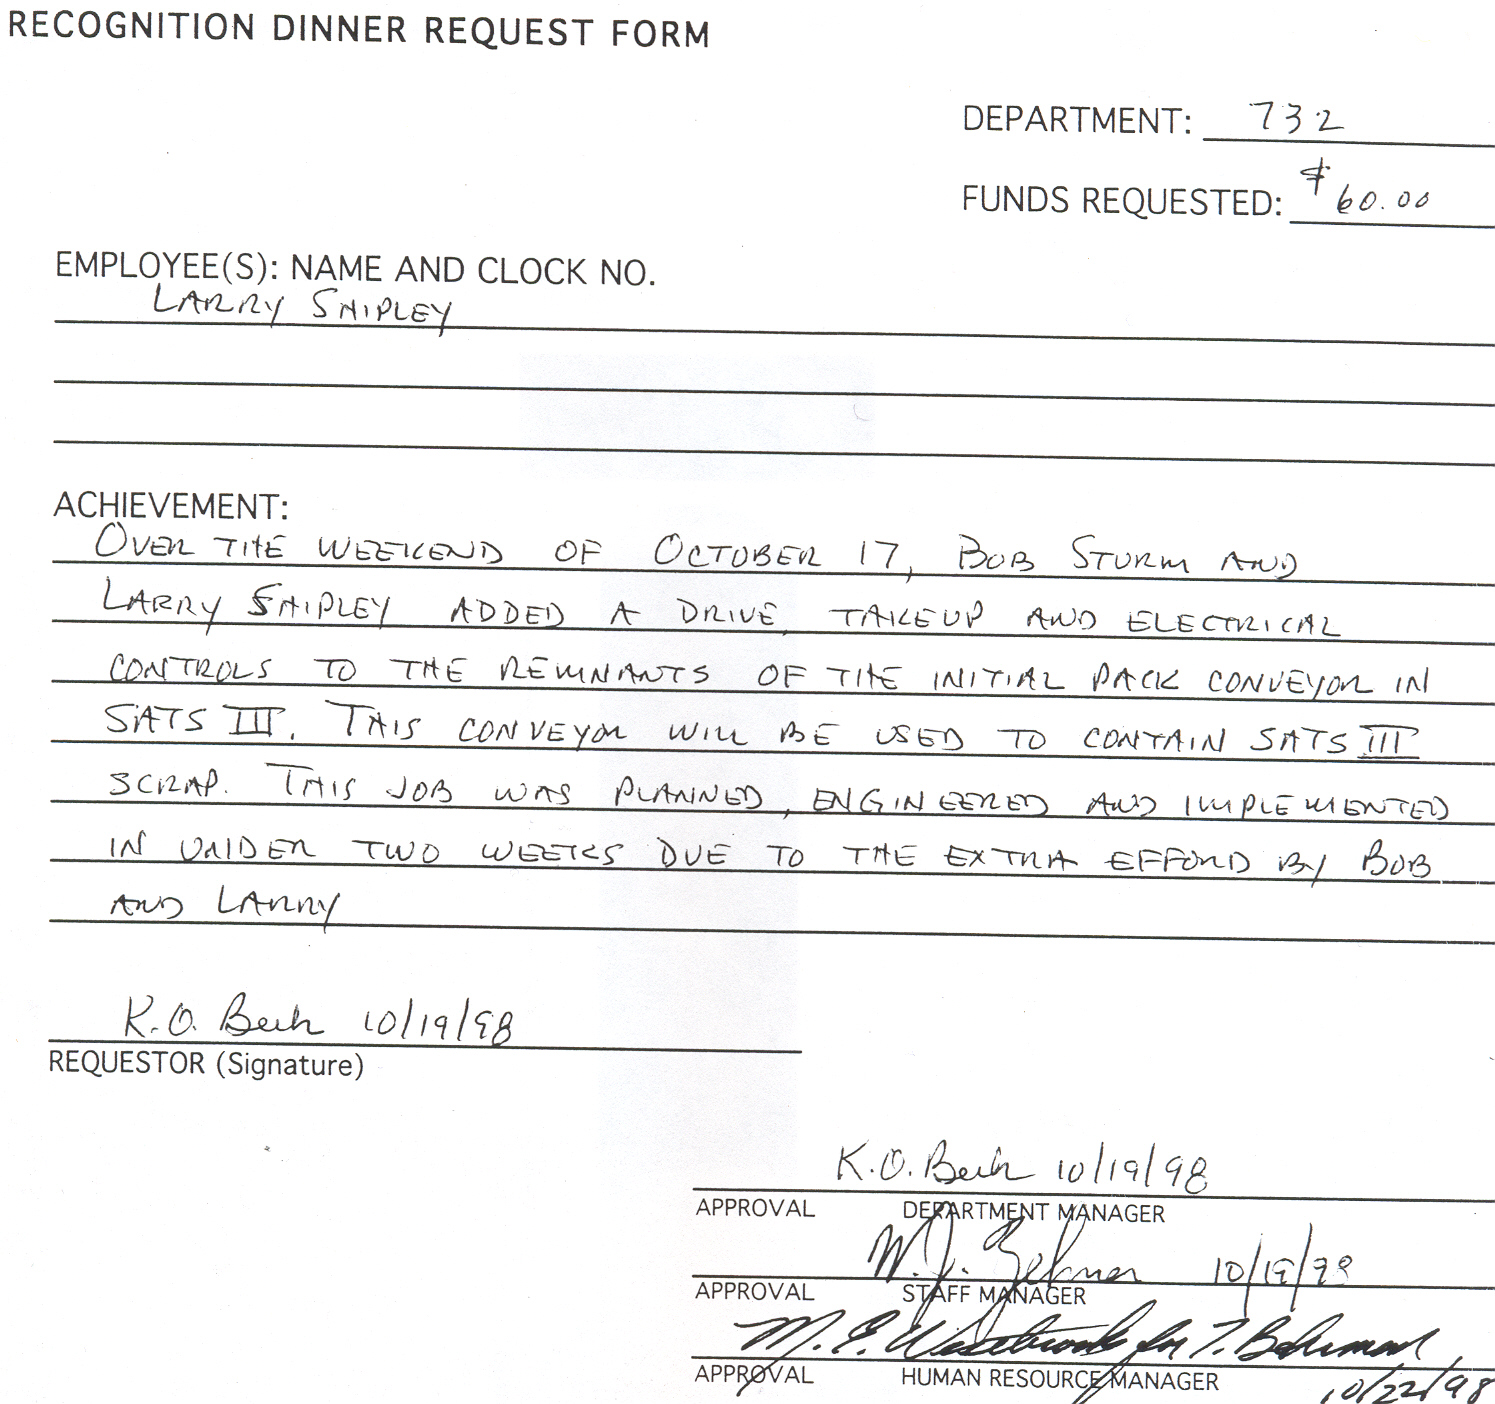 RECOGNITION DINNER REQUEST FORM
DEPARTMENT: 732
FUNDS REQUESTED: $60.00
EMPLOYEE(S): NAME AND CLOCK NO.
LARRY SHIPLEY
ACHIEVEMENT:
OVER THE WEEKEND OF OCTOBER 17, BOB STURM AND
LARRY SHIPLEY ADDED A DRIVE, TAKEUP AND ELECTRICAL
CONTROLS TO THE REMNANTS OF THE INITIAL PACK CONVEYOR IN
SATS III. THIS CONVEYOR WILL BE USED TO CONTAIN SATS III
SCRAP. THIS JOB WAS PLANNED, ENGINEERED AND IMPLEMENTED
IN UNDER TWO WEEKS DUE TO THE EXTRA EFFORD BY BOB
AND LARRY
K.O. Beck 10/19/98
REQUESTOR (Signature)
K.O. Beck 10/19/98
APPROVAL DEPARTMENT MANAGER
W.J. 10/19/98
APPROVAL STAFF MANAGER
M. E. Westbrook for T.
APPROVAL HUMAN RESOURCE MANAGER
10/22/98